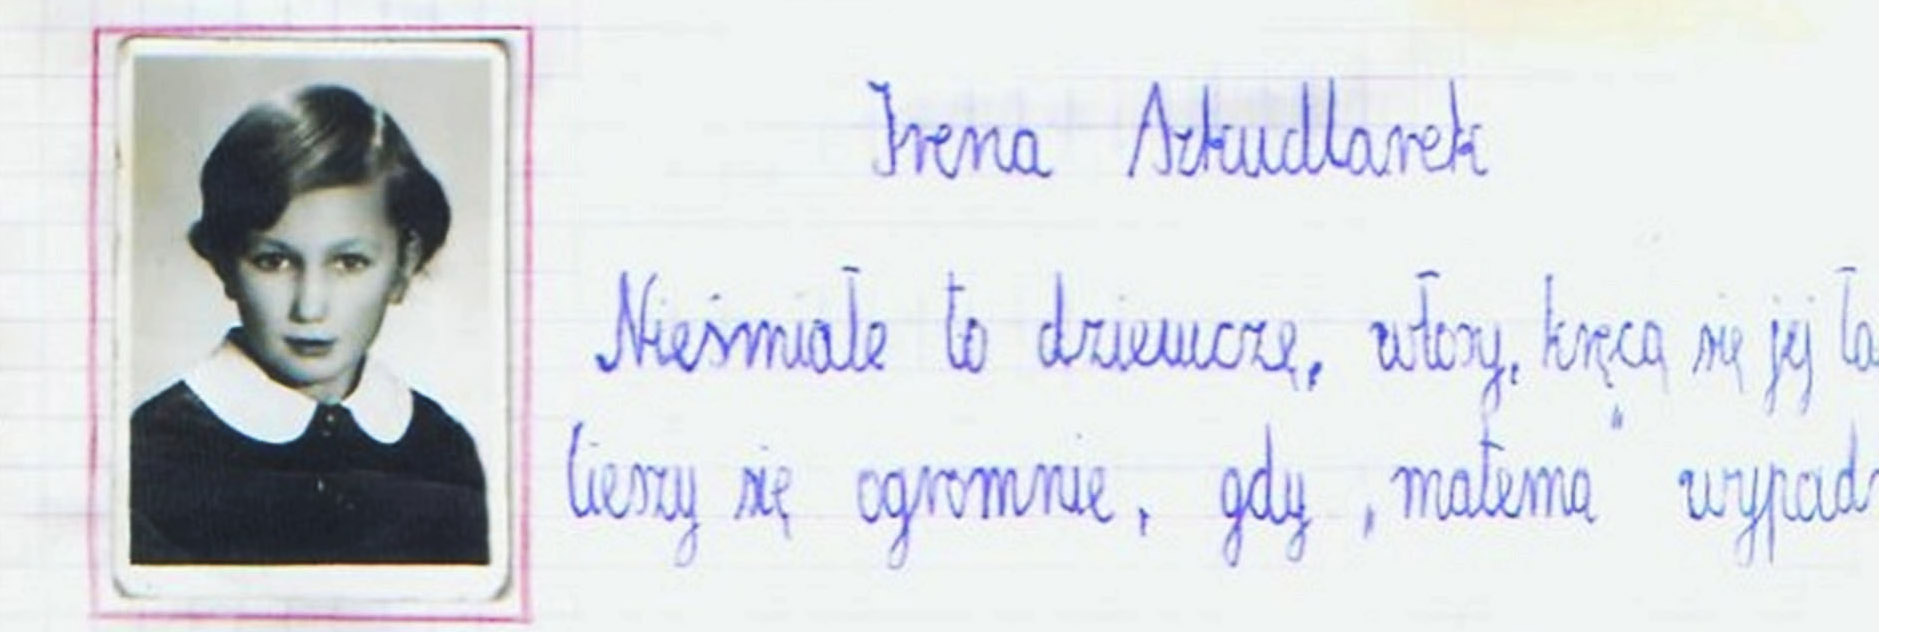 Irena Szkudlarek
Nieśmiałe to dziewczę, włosy, kręcą się jej
Cieszy się ogromnie, gdy „matema"